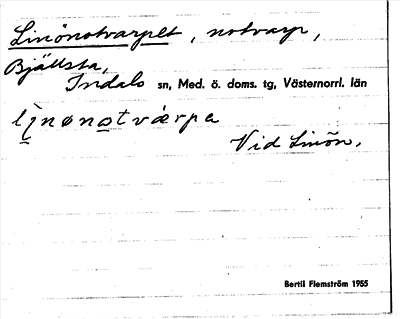 Linönotvarpet, notvarp,
Bjällsta,
Indals sn, Med. ö. doms. tg, Västernorrl. län
li̯nønotværpa
Vid Linön.
Bertil Flemström 1955